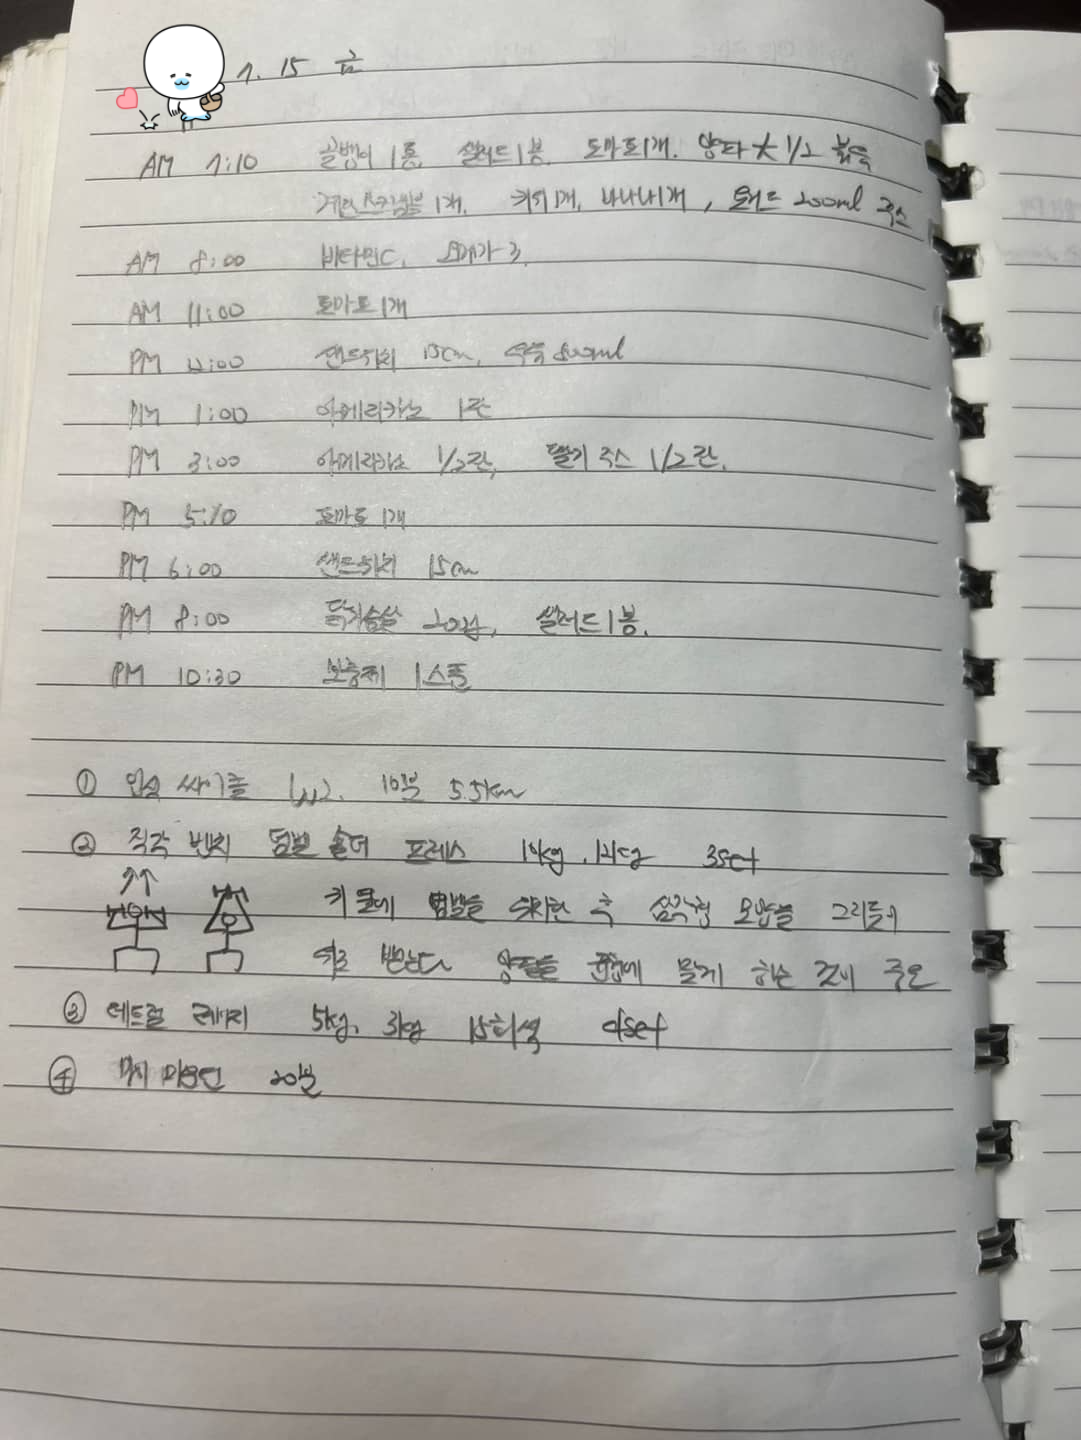 7. 15 금
AM 7:10 골뱅이 1통, 샐러드 1봉, 토마토 1개, 양파 大 1/2 볶음
계란 스크램블 1개, 키위 1개, 바나나 1개, 아몬드 200ml 주스
AM 8:00 비타민C, 오메가 3
AM 11:00 토마토 1개
PM 12:00 샌드위치 15cm, 우유 800ml
PM 1:00 아메리카노 1잔
PM 3:00 아메리카노 1/2잔, 딸기 주스 1/2잔.
PM 5:10 토마토 1개
PM 6:00 샌드위치 15cm
PM 8:00 닭가슴살, 샐러드 1봉.
PM 10:30 보충제 1스푼
① 인실 싸이클 10분 5.5km
② 직각 벤치 덤벨 숄더 프레스 10kg, 12kg 3set
귀 옆에 덤벨을 위치한 후 삼각형 모양을 그리듯이
위로 뻗는다 양팔을 끝에 모이게 하는 것이 중요
③ 레터럴 레이지 5kg, 3kg 15회씩 4set
④ 마시 마운틴 20분